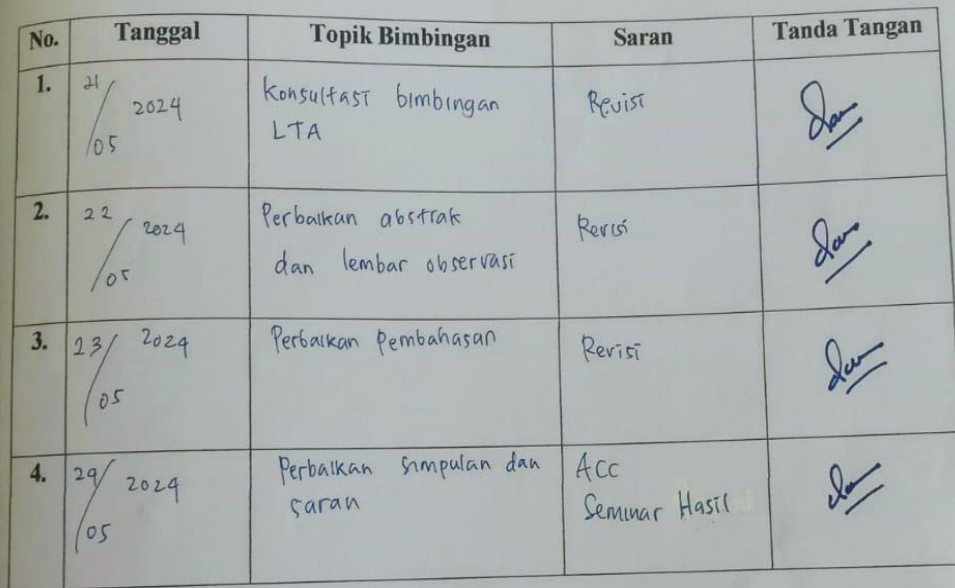 No. Tanggal Topik Bimbingan Saran Tanda Tangan
1. 21/05 2024 Konsultasi bimbingan Revisi
LTA
2. 22/05 2024 Perbaikan abstrak Revisi
dan lembar observasi
3. 23/05 2024 Perbaikan Pembahasan Revisi
4. 29/05 2024 Perbaikan simpulan dan ACC
saran Seminar Hasil